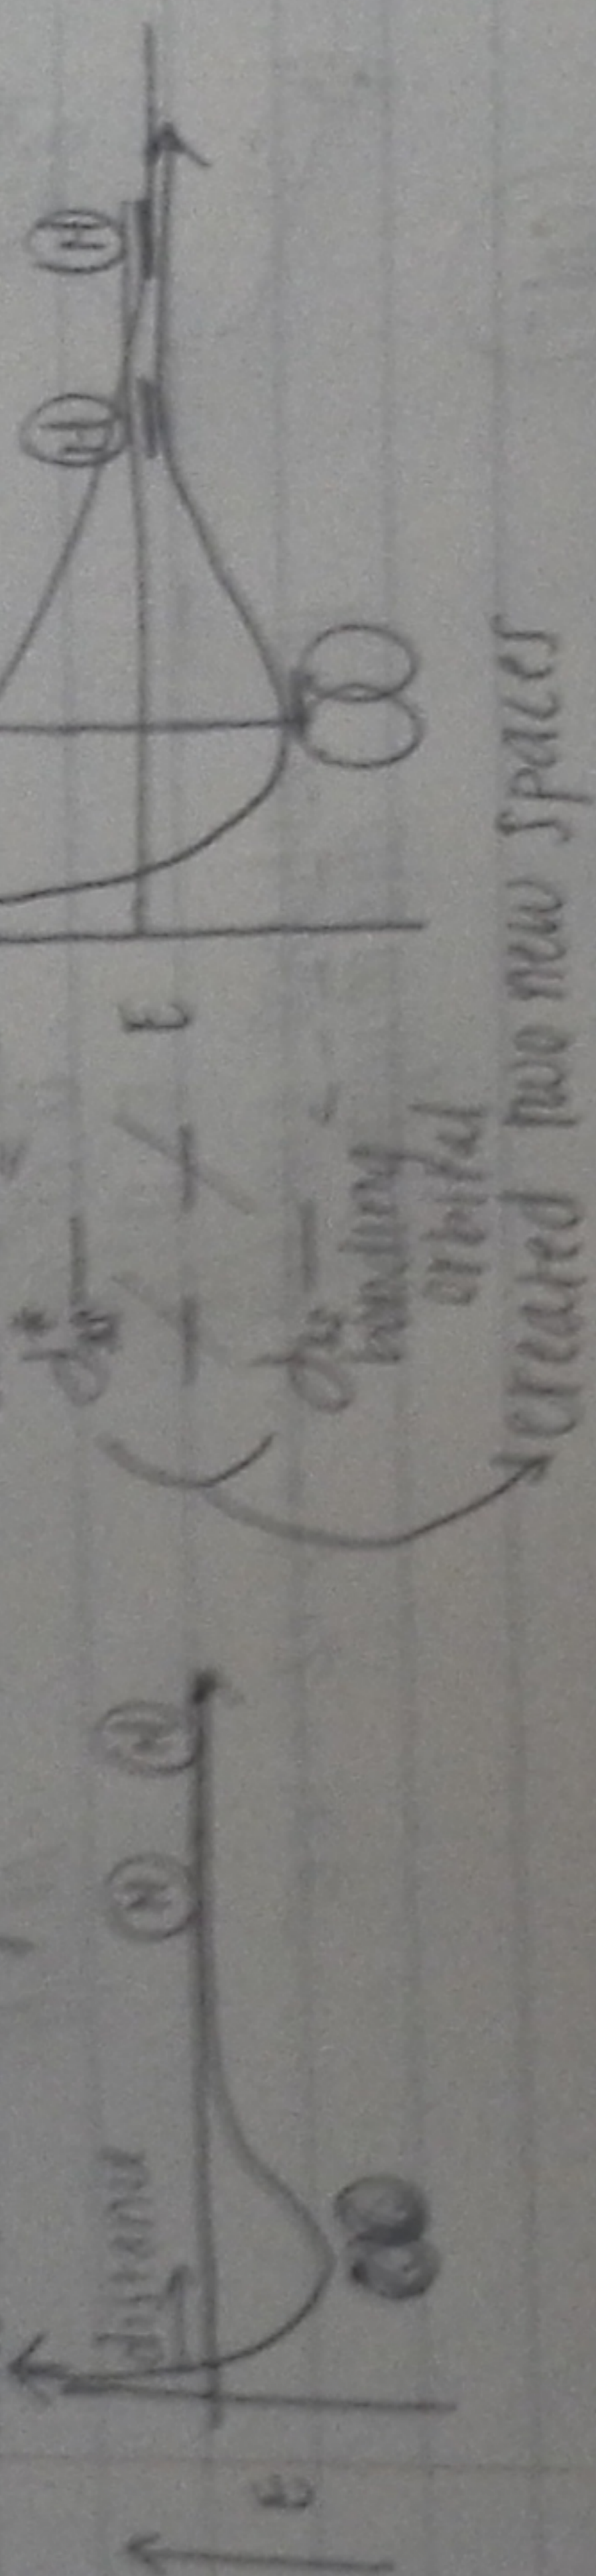 E
distance
(H)
(H)
E
σ*
σ
bonding
orbital
created two new spaces
(H)
(H)